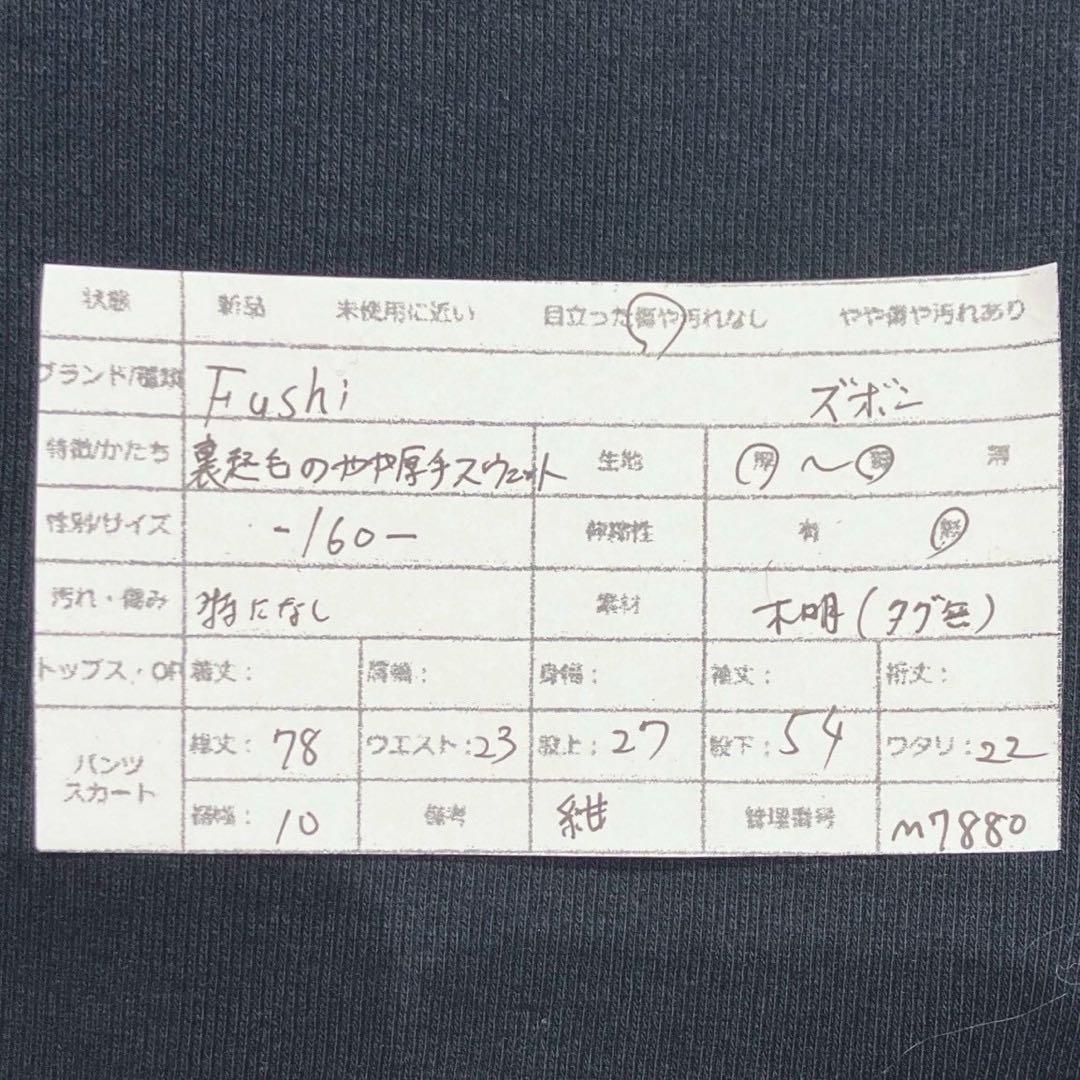 状態 新品 未使用に近い 目立った傷や汚れなし やや傷や汚れあり
ブランド/種類 Fushi ズボン
特徴/かたち 裏起毛のやや厚手スウェット 生地 厚 〜 普 薄
性別/サイズ -160- 伸縮性 有 無
汚れ・傷み 特になし 素材 不明(タグ無)
トップス・OP 着丈: 肩幅: 身幅: 袖丈: 裄丈:
パンツ スカート 総丈:78 ウエスト:23 股上:27 股下:54 ワタリ:22
裾幅:10 備考 紺 管理番号 m7880